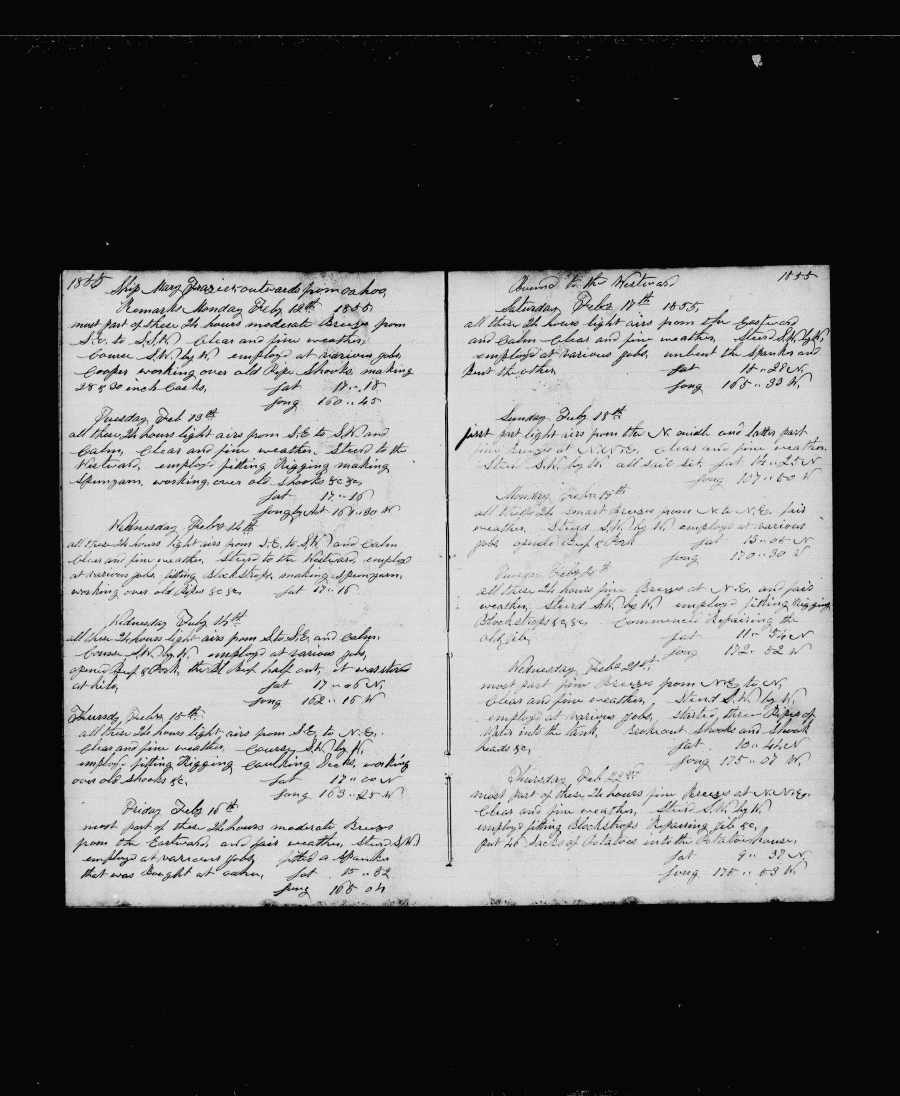 1855 Ship Mary Frazier outwards from oahoo,
Remarks Monday Feby 12th 1855
most part of these 24 hours moderate Breezes from
S.E. to S.S.W. Clear and fine weather,
Course S.W. by W. employd at various jobs,
Cooper working over old Pipe Shooks, making
28 & 30 inch Casks, Lat 17 .. 18
Long 160 .. 45
Tuesday Feb 13th
all these 24 hours light airs from S.E to S.W. and
Calm, Clear and fine weather. Steerd to the
Westward, employd fitting Rigging making
Spunyarn, working over old Shooks &c &c,
Lat 17 .. 16
Long by Act 161 .. 30 W
Wednesday Febr 14th
all these 24 hours light airs from S.E. to S.W. and Calm
Clear and fine weather, Steerd to the Westward, employd
at various jobs, fitting Blockstrops, making Spunyarn,
working over old Pipes &c &c Lat 17 .. 16
Wednesday Feby 14th
all these 24 hours light airs from S. to S.E. and Calm.
Course S.W. by W. employd at various jobs,
opened Beef & Pork, the Bl Beef half out, it was stove
at hilo, Lat 17 .. 06 N,
Long 162 .. 16 W
Thursdy Febr 15th
all these 24 hours light airs from S.E. to N.E,
Clear and fine weather, Course S.W. by W.
employd fitting Rigging Caulking Decks, working
over old Shooks &c. Lat 17 .. 00 N
Long 163 .. 25 W
Friday Feby 16th
most part of these 24 hours moderate Breezes
from the Eastward, and fair weather, Steerd S.W.
employd at various jobs, fitted a Spanker
that was Bought at oahu, Lat 15 .. 52
Long 165 04
Bound to the Westward 1855
Saturday Febr 17th 1855,
all these 24 hours light airs from the Eastward
and Calm Clear and fine weather, Steerd S.W. by W,
employd at various jobs, unbent the Spanker and
Bent the other, Lat 15 .. 28 N
Long 165 .. 33 W
Sunday Feby 18th
first part light airs from the N. midle and latter part
fine Breezes at N.N.E. Clear and fine weather.
Steerd S.W. by W. all Sail Set. Lat 14 .. 25 N
Long 167 .. 50 W
Monday Febr 19th
all these 24 Smart Breezes from N. to N.E. fair
weather, Steerd S.W. by W. employd at various
jobs opened Beef & Pork Lat 13 .. 05 N
Long 170 .. 30 W
Tuesday Feb 20th
all these 24 hours fine Breezes at N.E. and fair
weather, Steerd S.W. by W. employd fitting Rigging
Blockstrops &c &c, Commenced Repairing the
old jib, Lat 11 .. 54 N
Long 172 .. 52 W
Wednesday Feb 21st
most part fine Breezes from N.E to N,
Clear and fine weather, Steerd S.W. by W,
employd at various jobs, Started three Pipes of
Water into the tank, Broke out Shooks and Shook
heads &c, Lat 10 .. 44 N
Long 175 .. 07 W,
Thursday Feb 22nd
most part of these 24 hours fine Breezes at N.N.E.
Clear and fine weather, Steerd S.W. by W
employd fitting Blockstrops Repairing jib &c,
put 46 Sacks of Potatoes into the Potatoe house,
Lat 9 .. 37 N,
Long 175 .. 53 W,